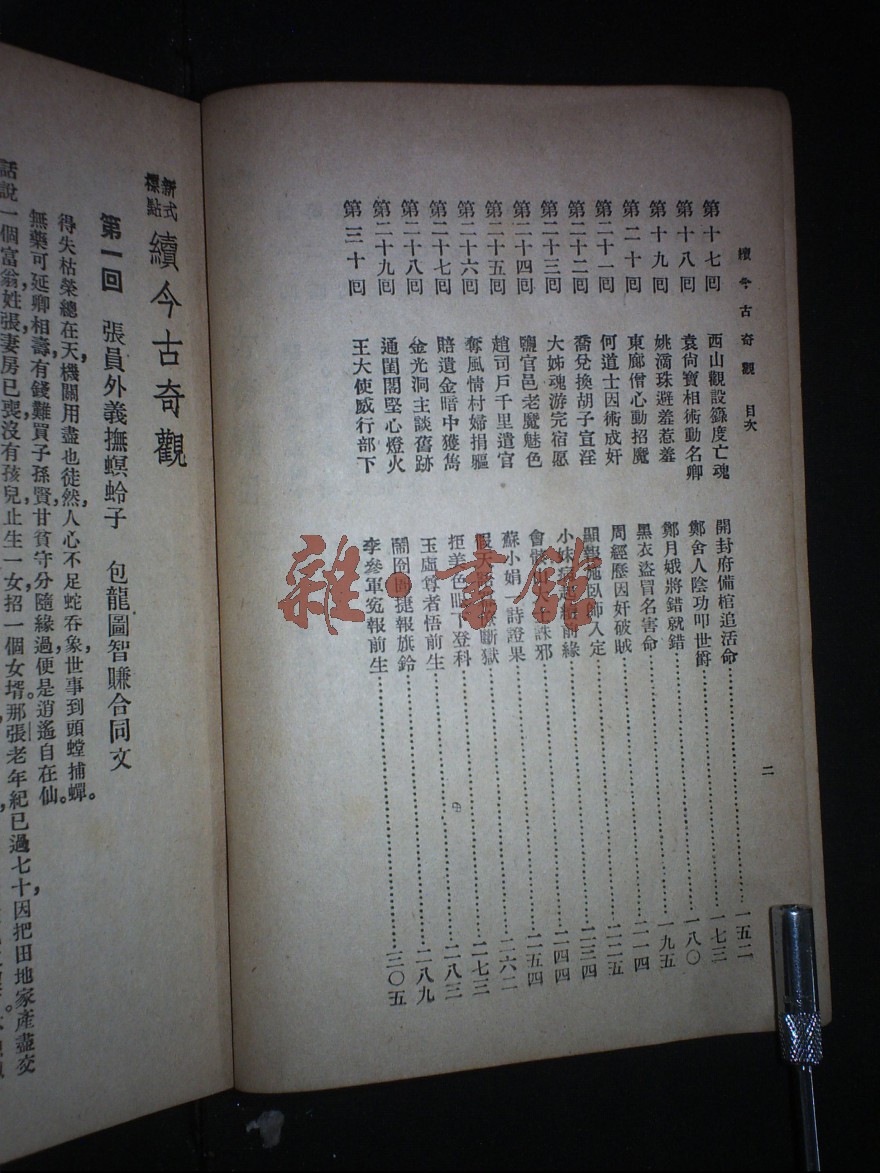 續今古奇觀 目次
二
第十七回 西山觀設籙度亡魂 開封府備棺追活命……一五二
第十八回 袁尙寶相術動名卿 鄭舍人陰功叩世爵……一七三
第十九回 姚滴珠避羞惹羞 鄭月娥將錯就錯……一八〇
第二十回 東廊僧心動招魔 黑衣盜冒名害命……一九五
第二十一回 何道士因術成奸 周經歷因奸破賊……二一四
第二十二回 喬兌換胡子宣淫 顯報施臥師入定……二二五
第二十三回 大姊魂游完宿愿 小妹病起續前緣……二三四
第二十四回 鹽官邑老魔魅色 會骸山大士誅邪……二四四
第二十五回 趙司戶千里遣官 蘇小娟一詩證果……二五四
第二十六回 奪風情村婦捐軀 假天斷獄……二六二
第二十七回 賠遺金暗中獲雋 拒美色眼下登科……二七三
第二十八回 金光洞主談舊跡 玉虛尊者悟前生……二八三
第二十九回 通閨闥堅心燈火 鬧囹圄捷報旗鈴……二八九
第三十回 王大使威行部下 李參軍冤報前生……三〇五
雜·書館
新式標點 續今古奇觀
第一回 張員外義撫螟蛉子 包龍圖智賺合同文
得失枯榮總在天，機關用盡也徒然，人心不足蛇吞象，世事到頭螳捕蟬。
無藥可延卿相壽，有錢難買子孫賢，甘貧守分隨緣過，便是逍遙自在仙。
話說一個富翁，姓張，妻房已喪，沒有孩兒，止生一女，招一個女壻。那張老年紀已過七十，因把田地家產盡交